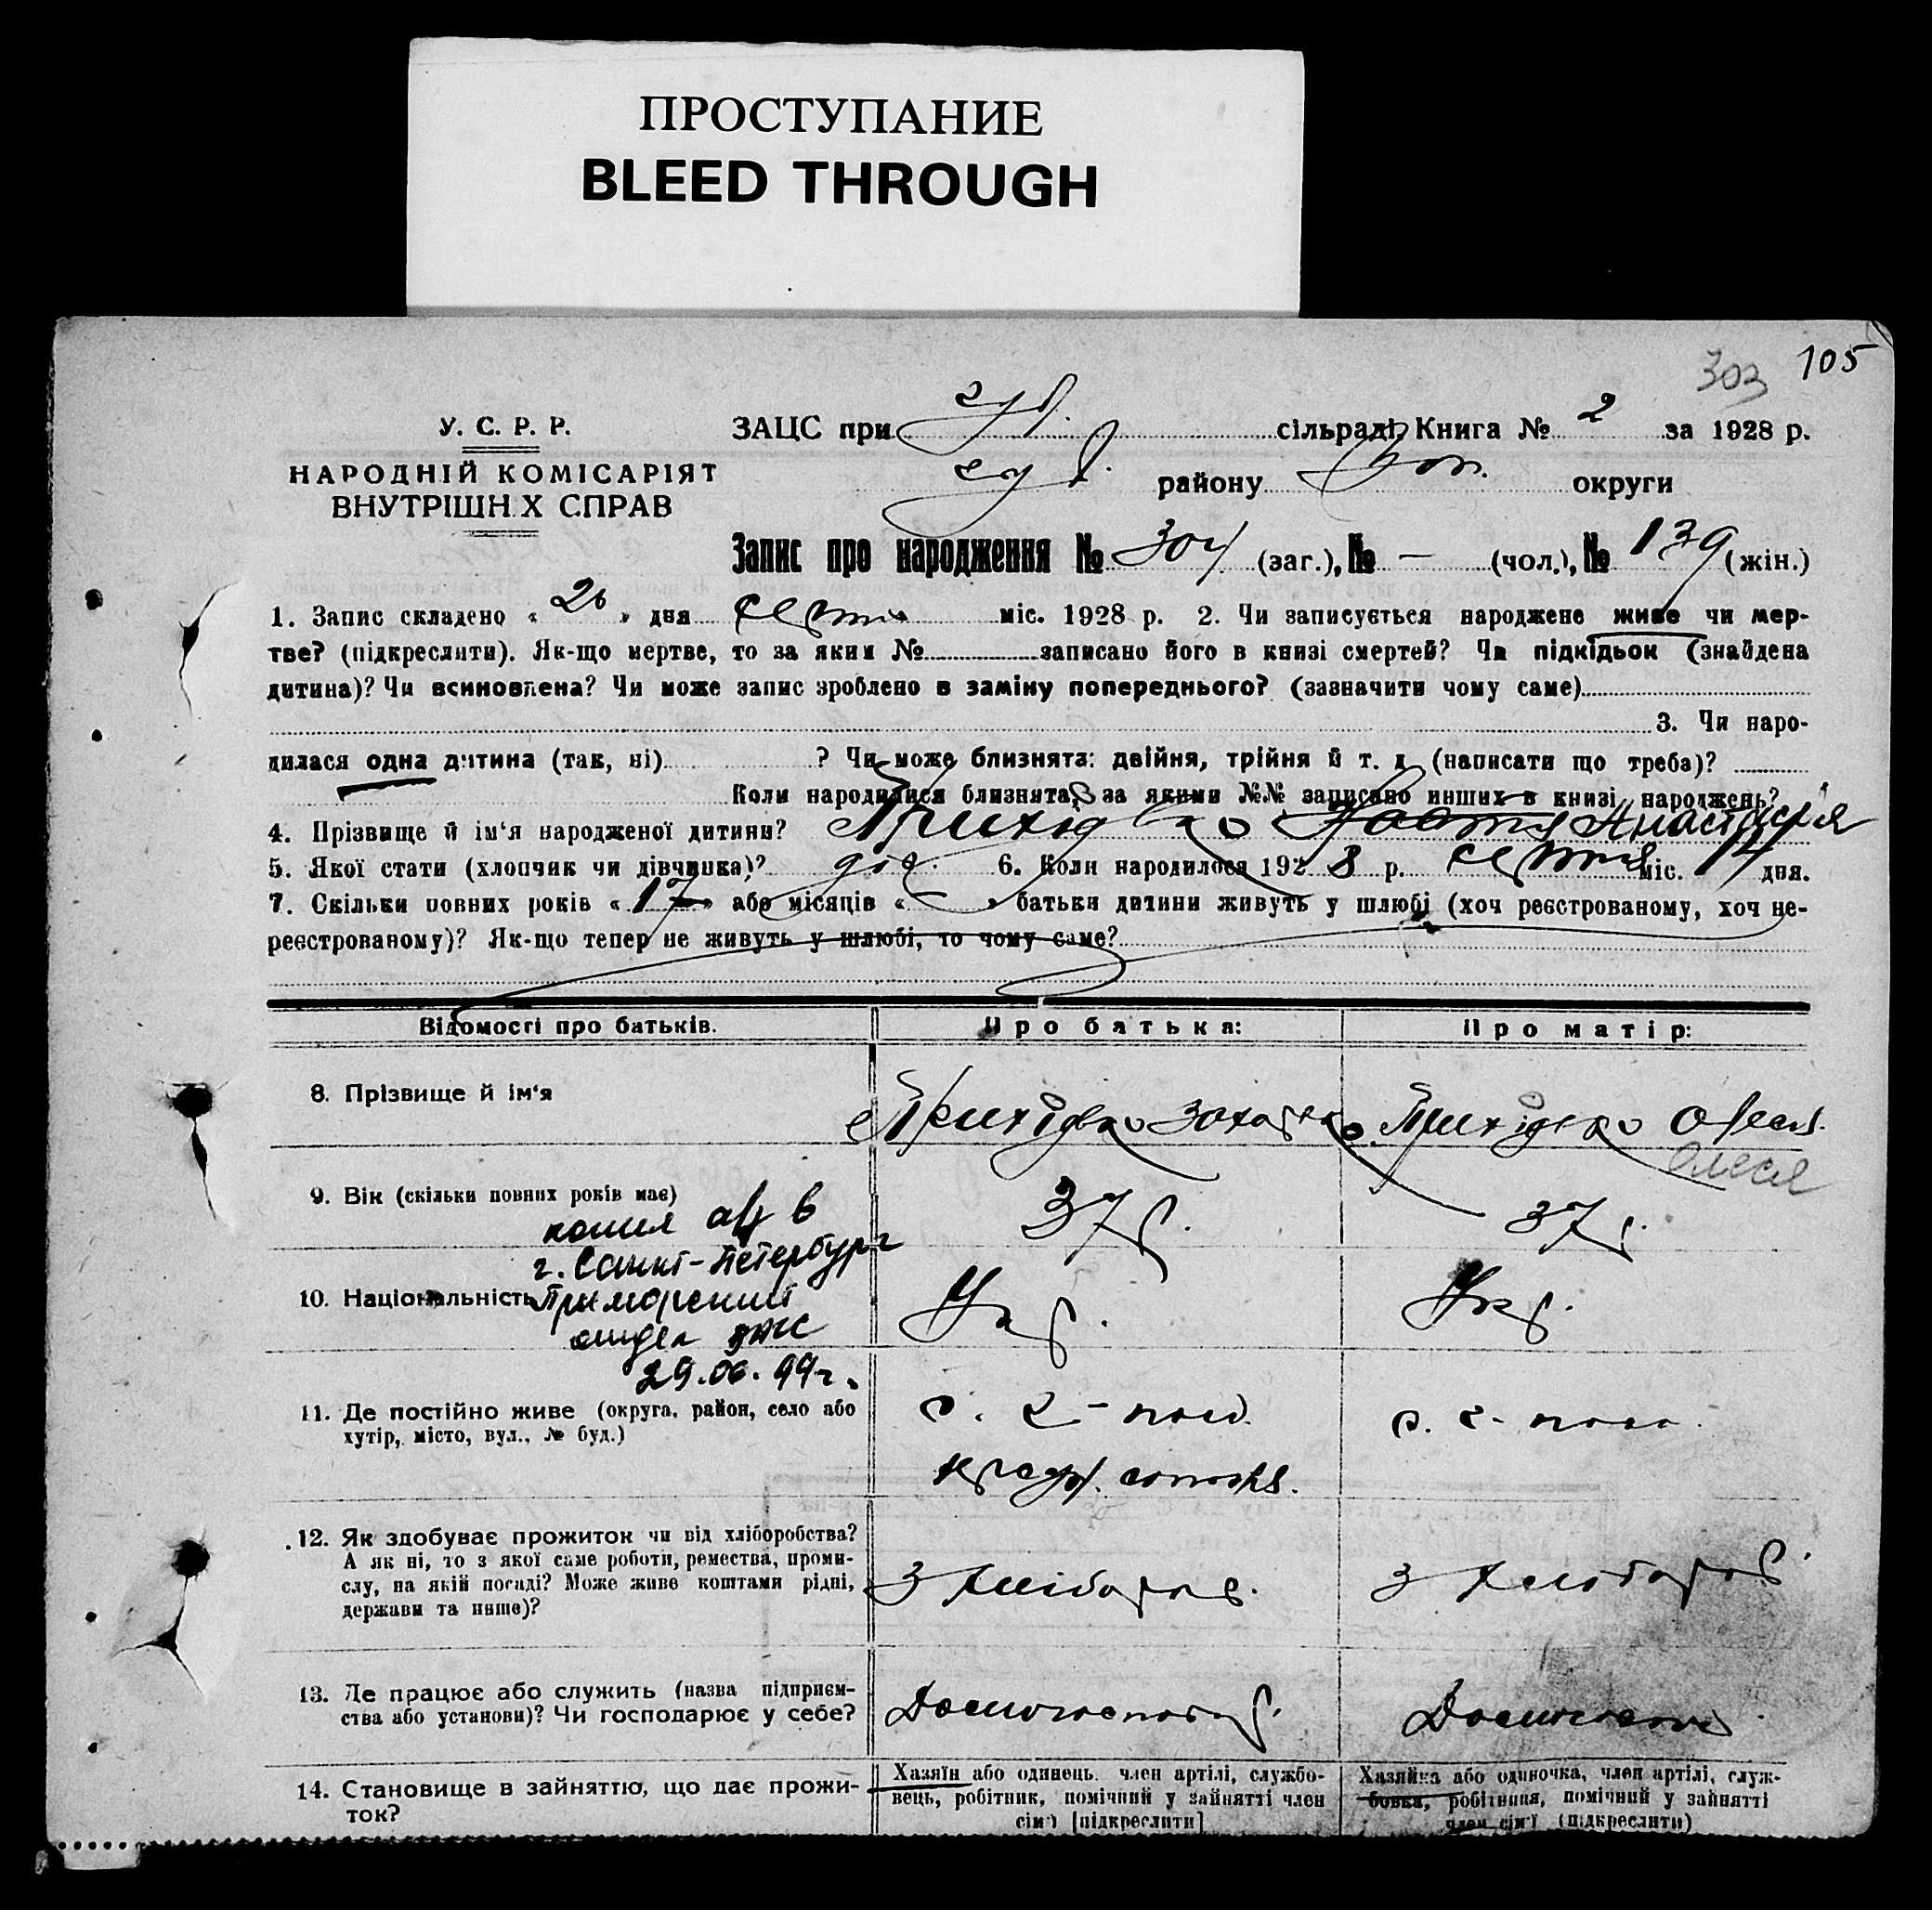 ПРОСТУПАНИЕ
BLEED THROUGH
303 105
У. С. Р. Р.
НАРОДНІЙ КОМІСАРІЯТ
ВНУТРІШН Х СПРАВ
ЗАЦС при сільраді, Книга № 2 за 1928 р.
району округи
Запис про народження № 304 (заг.), № — (чол.), № 139 (жін.)
1. Запис складено « 26 » дня серпня міс. 1928 р. 2. Чи записується народжене живе чи мер-
тве? (підкреслити). Як-що мертве, то за яким № записано його в книзі смертей? Чи підкідьок (знайдена
дитина)? Чи всиновлена? Чи може запис зроблено в заміну попереднього? (зазначити чому саме)
3. Чи наро-
дилася одна дитина (так, ні) ? Чи може близнята: двійня, трійня й т. д. (написати що треба)?
Коли народилися близнята, за якими №№ записано инших в книзі народжень?
4. Прізвище й ім'я народженої дитини? Приходько Анастасія
5. Якої стати (хлопчик чи дівчинка)? дів. 6. Коли народилося 1928 р. серпня міс. 14 дня.
7. Скільки повних років « 17 » або місяців « — » батьки дитини живуть у шлюбі (хоч реєстрованому, хоч не-
реєстрованому)? Як-що тепер не живуть у шлюбі, то чому саме?
Відомості про батьків. Про батька: Про матір:
8. Прізвище й ім'я Прихідько Захарко Прихідько
Олеся
9. Вік (скільки повних років має) 37 р. 37 р.
копия а/з в
г. Санкт-Петербург
10. Національність Укр. Укр.
Приморский
отдел ЗАГС
29.06.99г.
11. Де постійно живе (округа, район, село або
хутір, місто, вул., № буд.)
12. Як здобуває прожиток чи від хліборобства?
А як ні, то з якої саме роботи, ремества, проми-
слу, на якій посаді? Може живе коштами рідні,
держави та инше)?
З хлібороб. З хлібороб.
13. Де працює або служить (назва підприєм-
ства або установи)? Чи господарює у себе?
Домогосподар.
14. Становище в зайняттю, що дає прожи-
ток?
Хазяїн або одинець, член артілі, службо-
вець, робітник, помічний у зайнятті член
сім'ї [підкреслити]
Хазяйка або одиночка, член артілі, служ-
бовка, робітниця, помічний у зайнятті
член сім'ї (підкреслити)